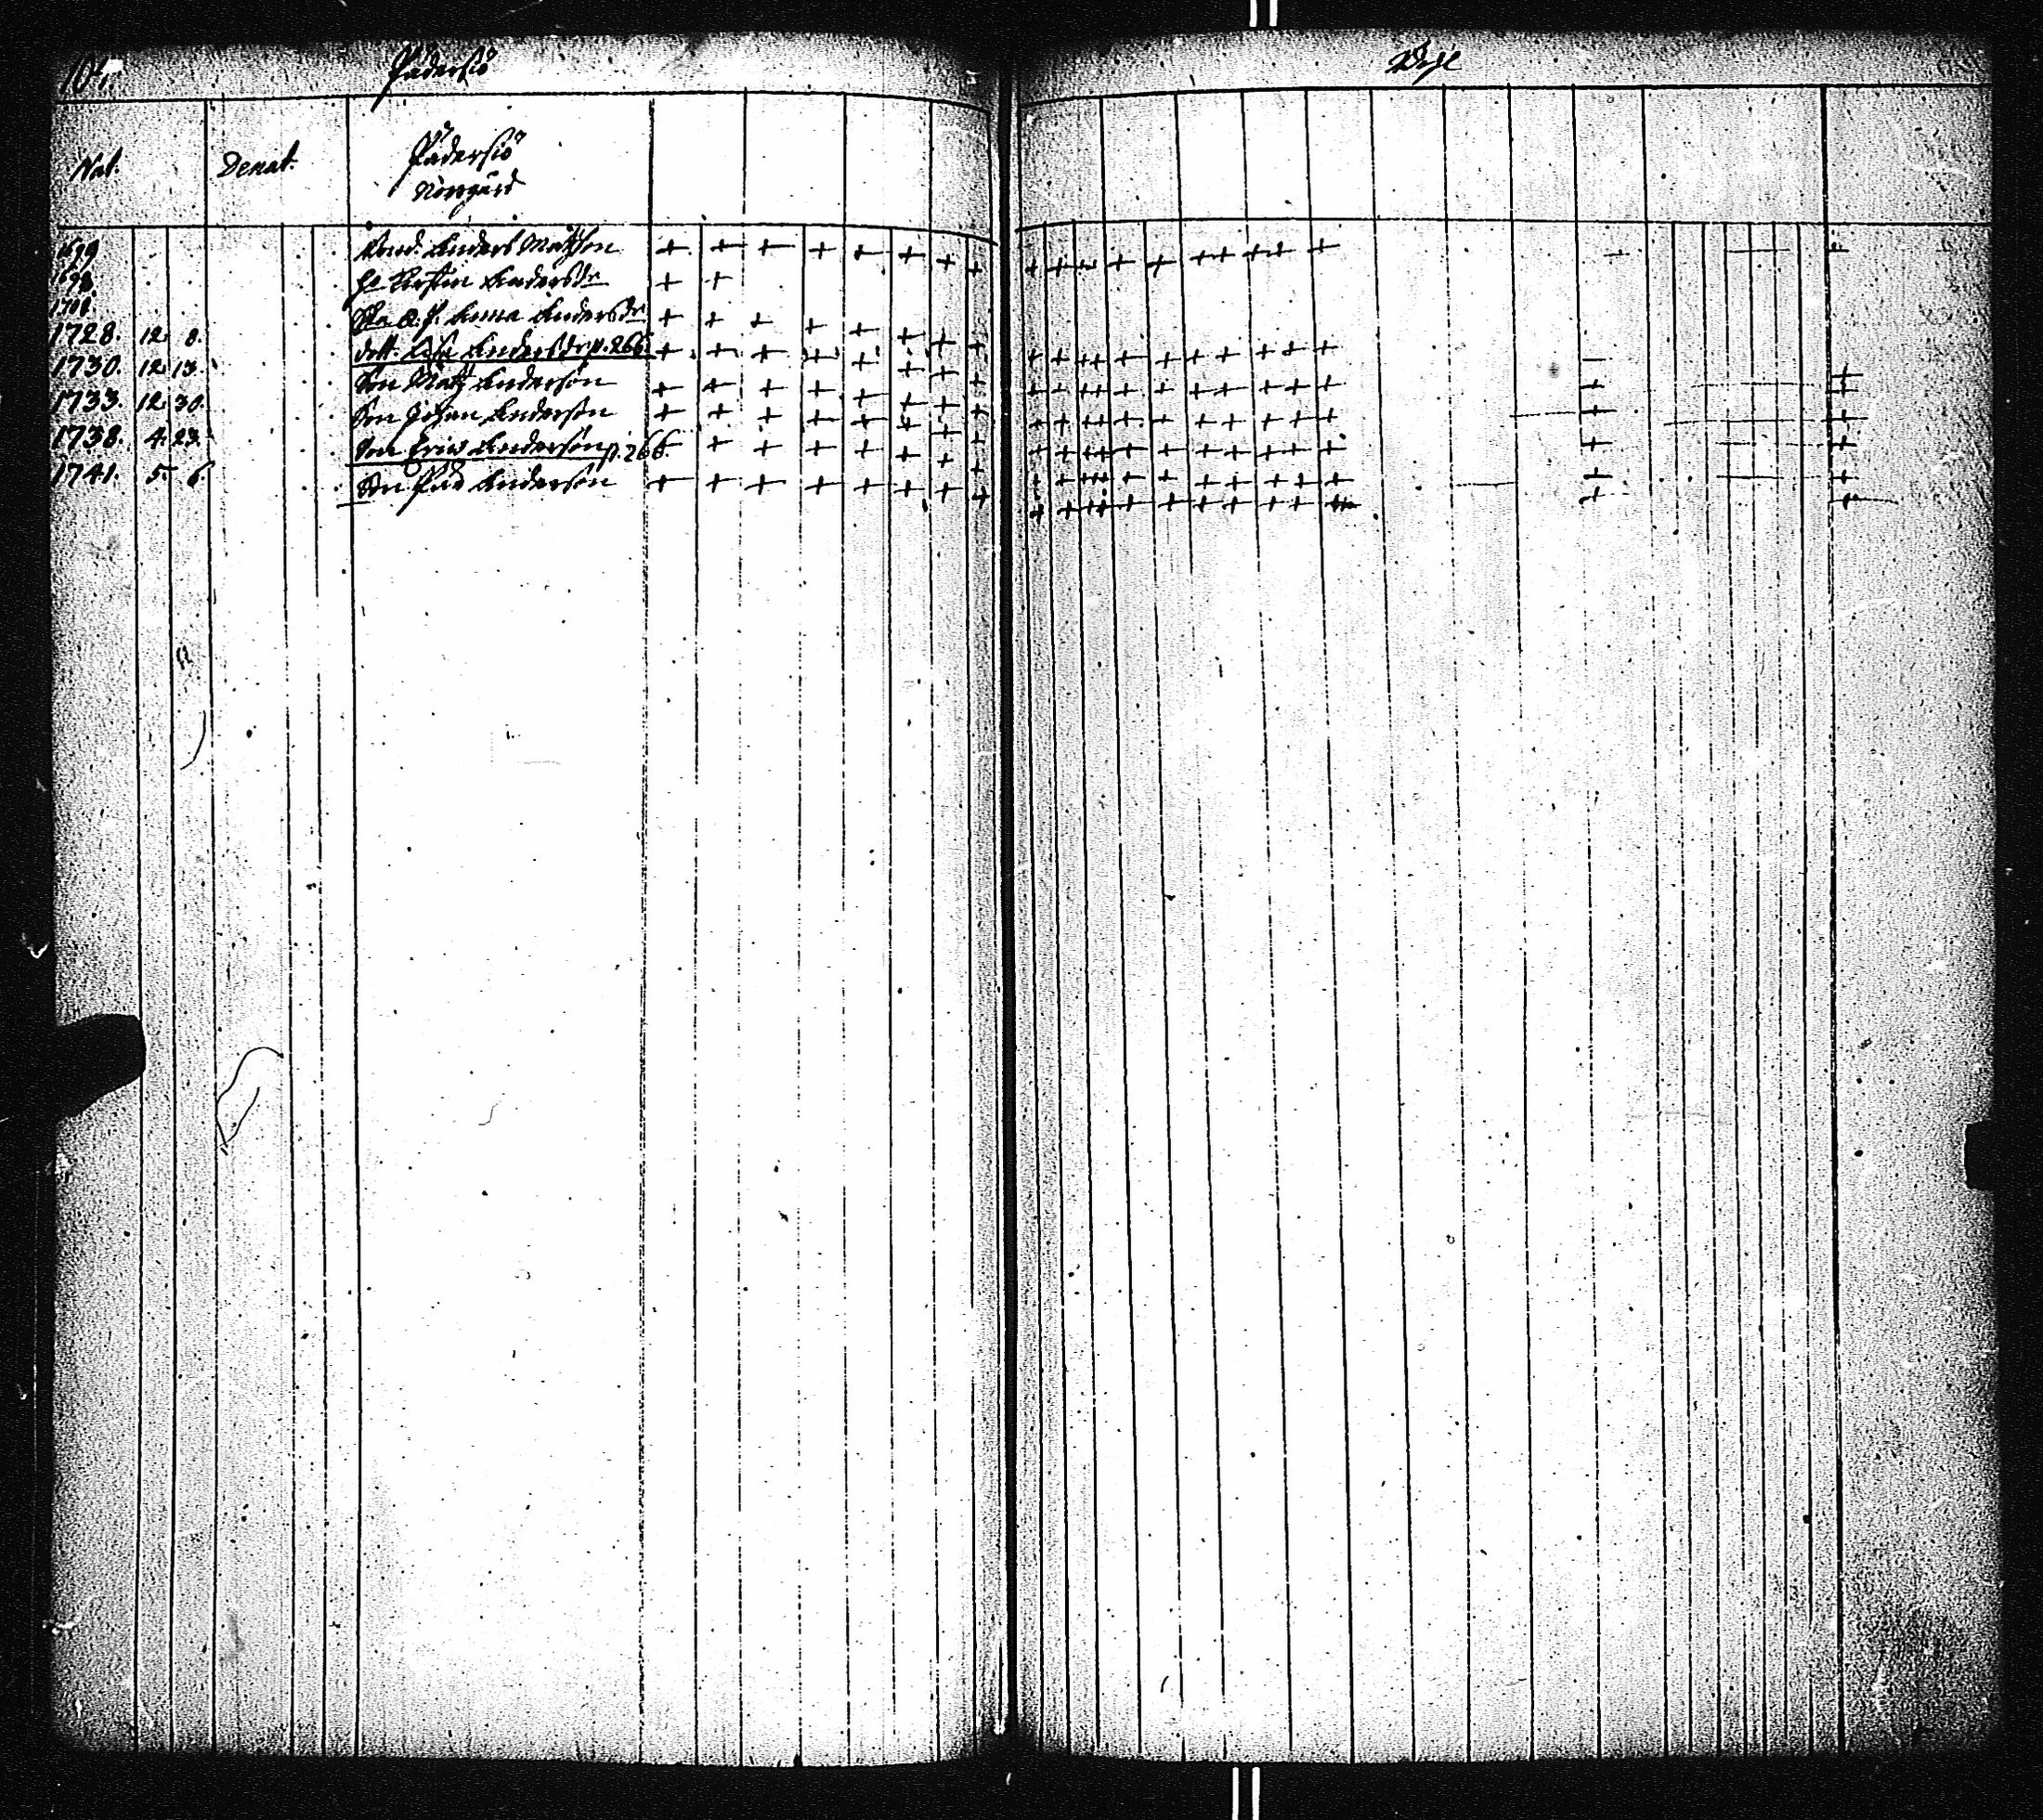 104.
Pädersiö
Wexl
Nat. Denat. Pädersiö
Norrgård
1699 Anders Mattson
1698 H. Kirstin Andersdr
1706 Anna Andersdr
1728. 12. 8. dott. Lisa Andersdr p. 266
1730. 12. 13. Son Matz Anderson
1733. 12. 30. Son Johan Anderson
1738. 4. 23. Son Eric Anderson p. 266.
1741. 5. 6. Son Påvel Anderson